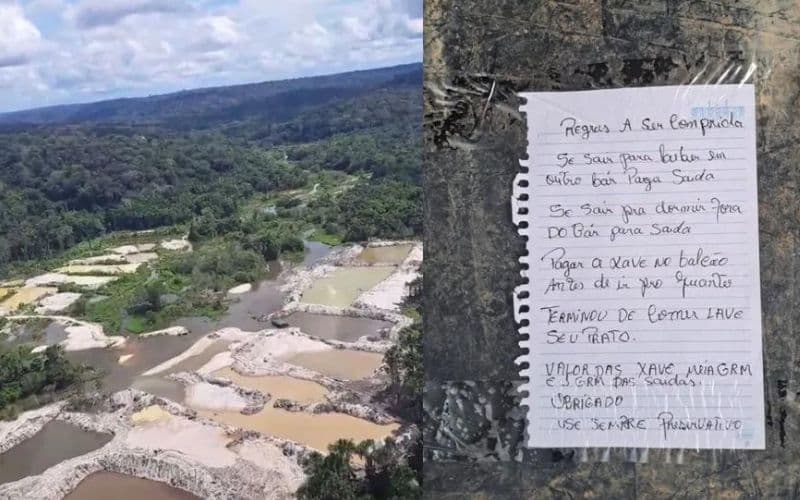 Regras A Ser Comprida
Se sair para batер em
outro bár Paga Saida
Se Sair pra dormir Fora
DO Bár para saida
Pagar a xave no balcão
Antes de ir pro Quarto
TERMINOU DE Comer LAVE
SEU PRATO.
VALOR DAS XAVE MEIA GRM
E 3 GRM DAS SAIDAS.
OBRIGADO
USE SEMPRE PRESERVATIVO